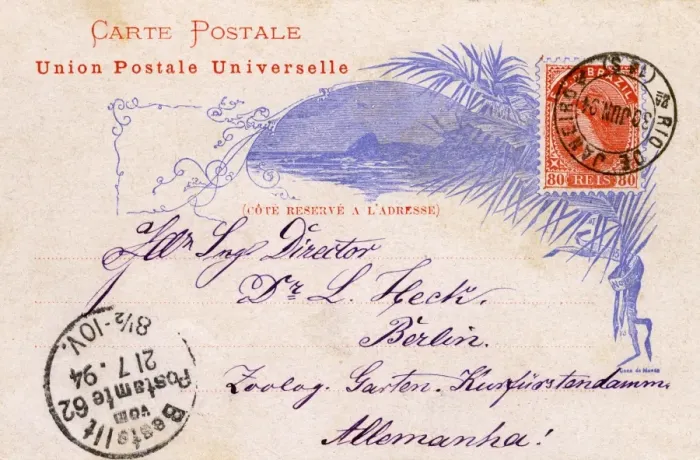 CARTE POSTALE
Union Postale Universelle
BRAZIL
80 REIS 80
RIO DE JANEIRO
30 JUN 94
(CÔTÉ RESERVÉ A L'ADRESSE)
Director
Dr. L. Heck.
Berlin.
Zoolog. Garten. Kurfürstendamm
Allemanha!
Bestellt
vom
Postamte 62
21 7. 94
8½-10V.